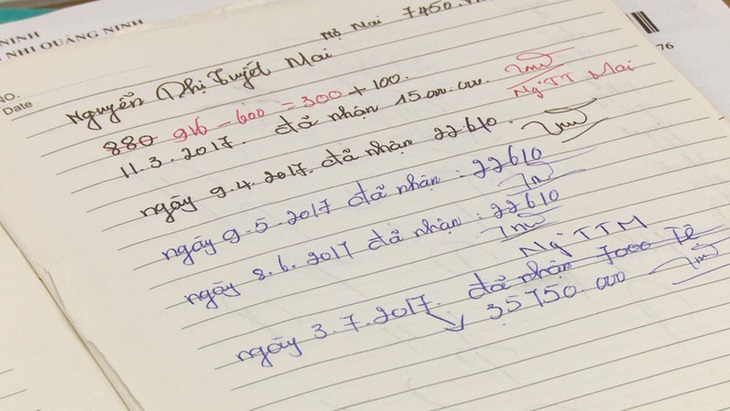 NINH
NHI QUẢNG NINH
Mai 7450.
NO.
Date
Nguyễn Thị Tuyết Mai
880 916 - 600 = 300 + 100.
11.3.2017. đã nhận 15.000.000
Ng TT Mai
ngày 9.4.2017. đã nhận 22610.
ngày 9.5.2017 đã nhận: 22610
ngày 8.6.2017 đã nhận: 22610
Ng TTM
ngày 3.7.2017. đã nhận 7000 Tệ
35750.000
76